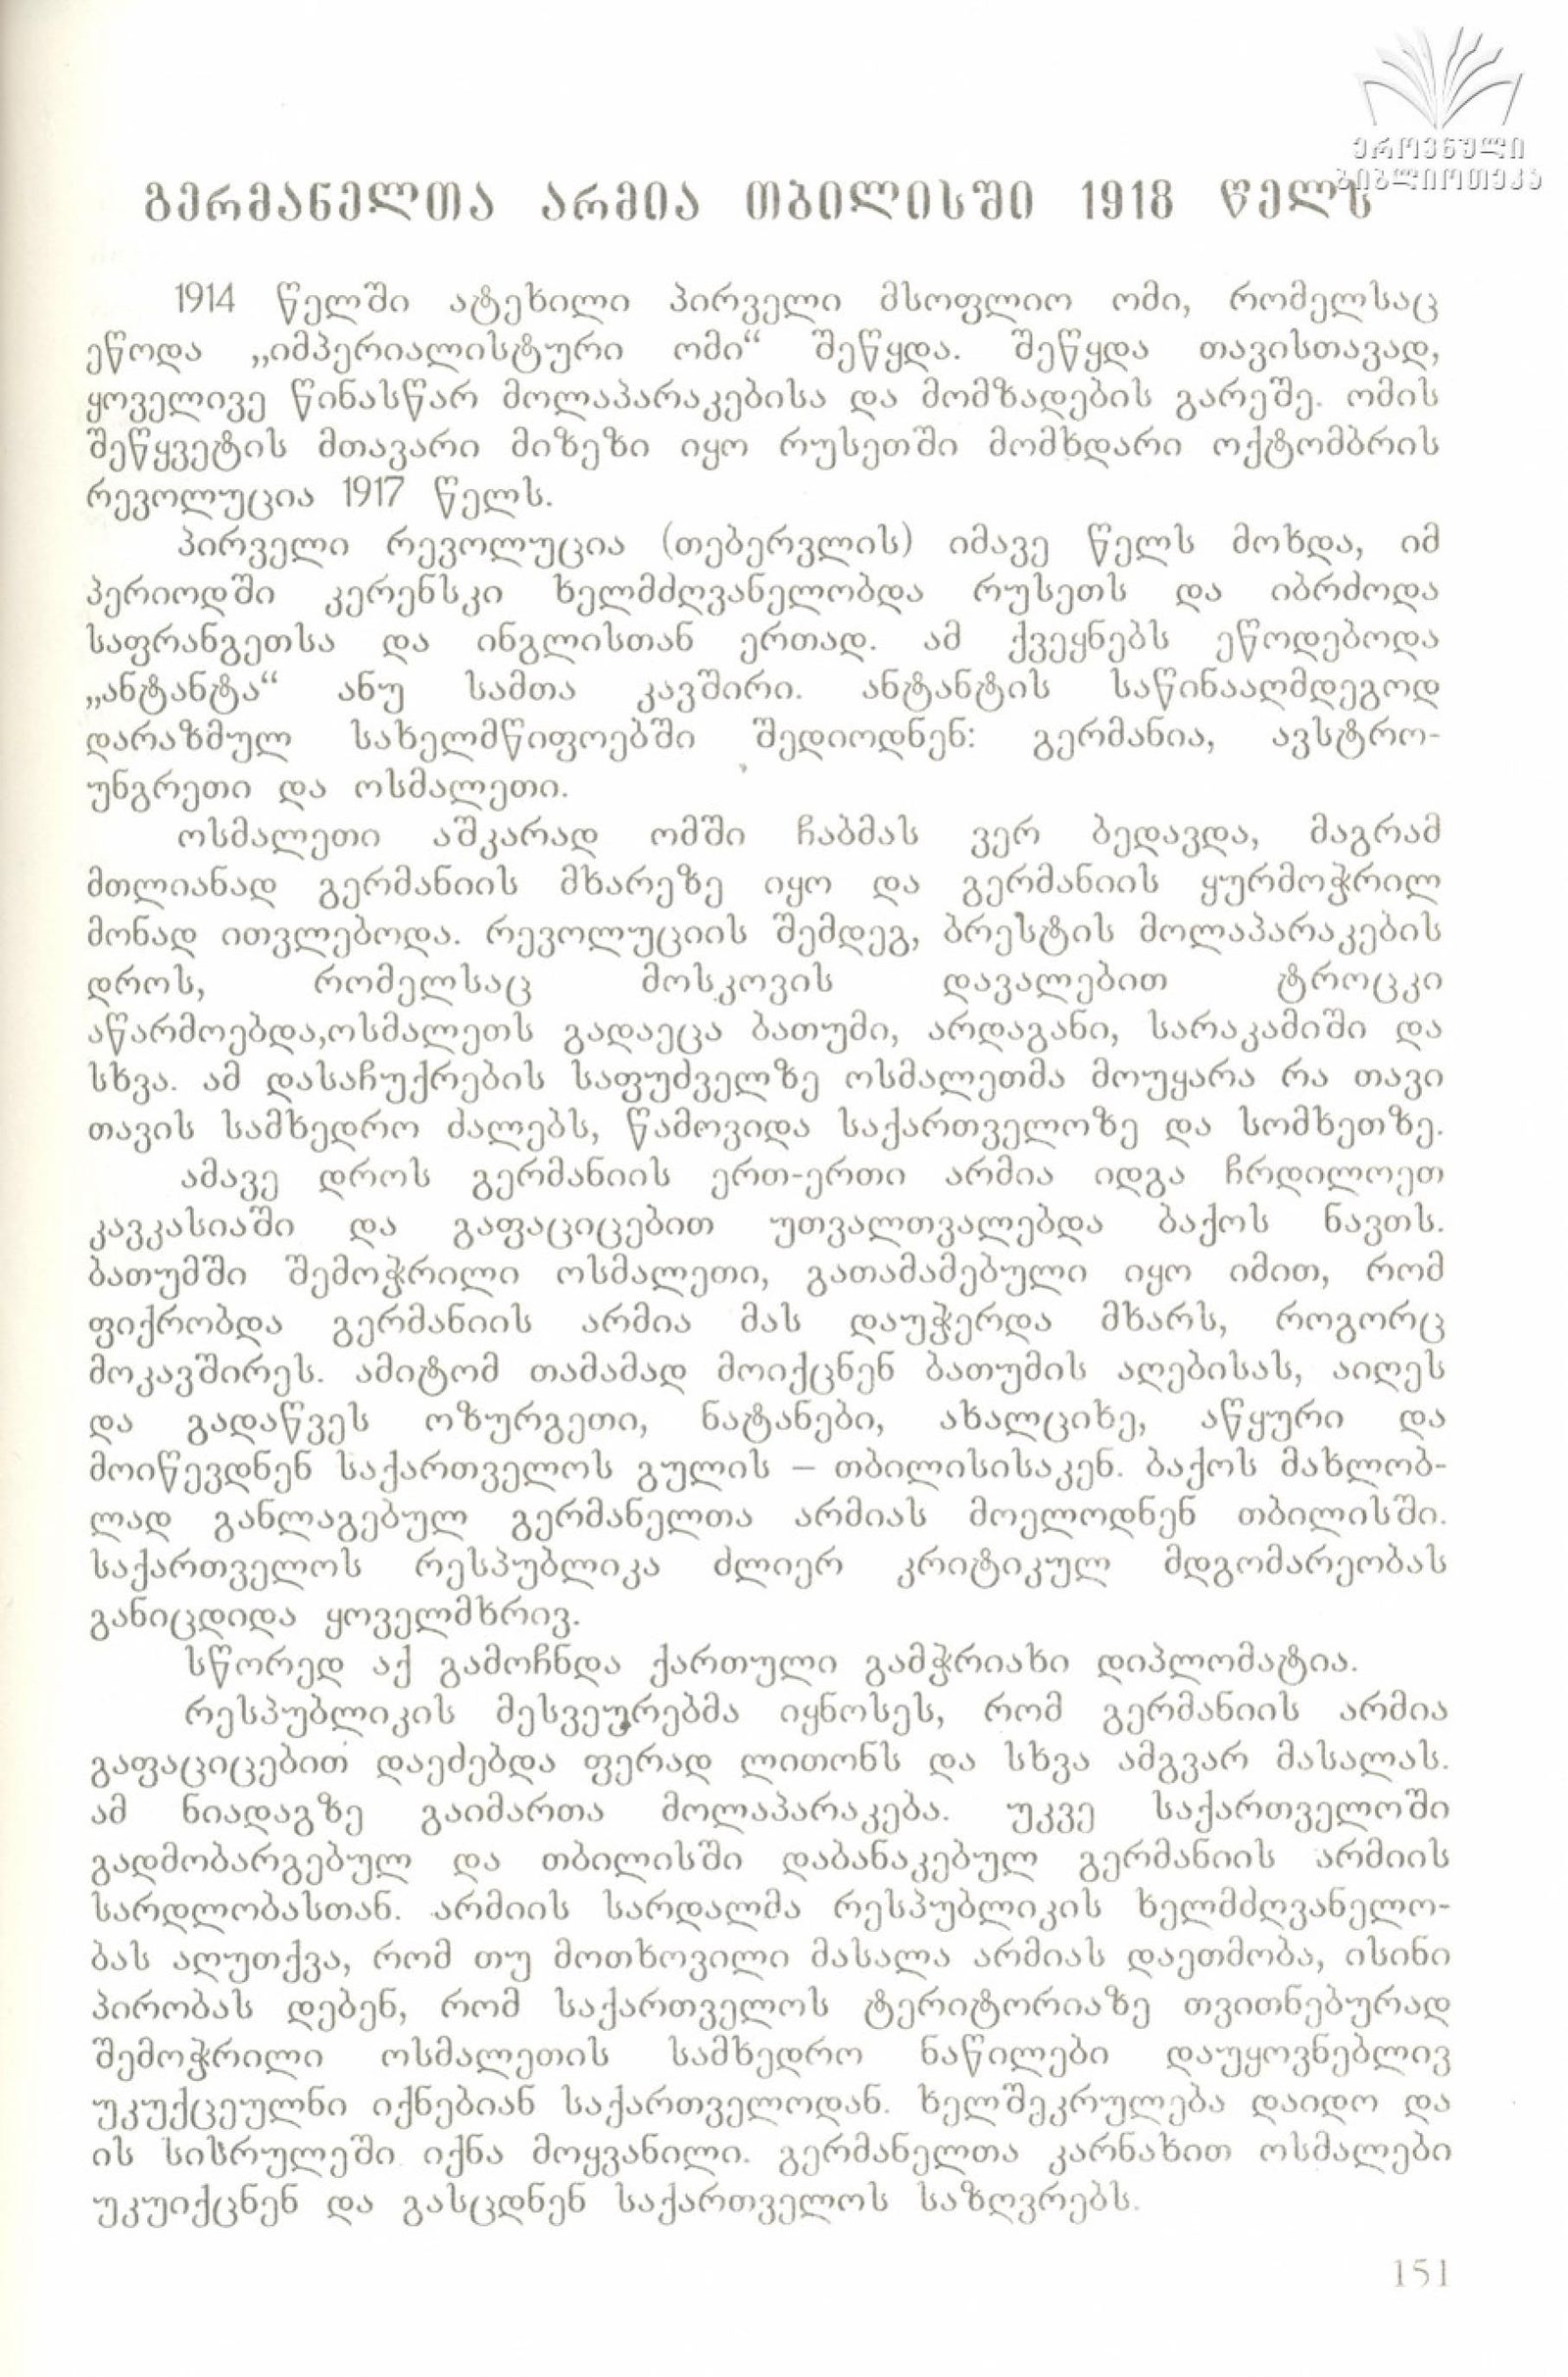 ეროვნული
ბიბლიოთეკა
გერმანელთა არმია თბილისში 1918 წელს
1914 წელში ატეხილი პირველი მსოფლიო ომი, რომელსაც
ეწოდა „იმპერიალისტური ომი“ შეწყდა. შეწყდა თავისთავად,
ყოველივე წინასწარ მოლაპარაკებისა და მომზადების გარეშე. ომის
შეწყვეტის მთავარი მიზეზი იყო რუსეთში მომხდარი ოქტომბრის
რევოლუცია 1917 წელს.
პირველი რევოლუცია (თებერვლის) იმავე წელს მოხდა, იმ
პერიოდში კერენსკი ხელმძღვანელობდა რუსეთს და იბრძოდა
საფრანგეთსა და ინგლისთან ერთად. ამ ქვეყნებს ეწოდებოდა
„ანტანტა“ ანუ სამთა კავშირი. ანტანტის საწინააღმდეგოდ
დარაზმულ სახელმწიფოებში შედიოდნენ: გერმანია, ავსტრო-
უნგრეთი და ოსმალეთი.
ოსმალეთი აშკარად ომში ჩაბმას ვერ ბედავდა, მაგრამ
მთლიანად გერმანიის მხარეზე იყო და გერმანიის ყურმოჭრილ
მონად ითვლებოდა. რევოლუციის შემდეგ, ბრესტის მოლაპარაკების
დროს, რომელსაც მოსკოვის დავალებით ტროცკი
აწარმოებდა,ოსმალეთს გადაეცა ბათუმი, არდაგანი, სარაკამიში და
სხვა. ამ დასაჩუქრების საფუძველზე ოსმალეთმა მოუყარა რა თავი
თავის სამხედრო ძალებს, წამოვიდა საქართველოზე და სომხეთზე.
ამავე დროს გერმანიის ერთ-ერთი არმია იდგა ჩრდილოეთ
კავკასიაში და გაფაციცებით უთვალთვალებდა ბაქოს ნავთს.
ბათუმში შემოჭრილი ოსმალეთი, გათამამებული იყო იმით, რომ
ფიქრობდა გერმანიის არმია მას დაუჭერდა მხარს, როგორც
მოკავშირეს. ამიტომ თამამად მოიქცნენ ბათუმის აღებისას, აიღეს
და გადაწვეს ოზურგეთი, ნატანები, ახალციხე, აწყური და
მოიწევდნენ საქართველოს გულის – თბილისისაკენ. ბაქოს მახლობ-
ლად განლაგებულ გერმანელთა არმიას მოელოდნენ თბილისში.
საქართველოს რესპუბლიკა ძლიერ კრიტიკულ მდგომარეობას
განიცდიდა ყოველმხრივ.
სწორედ აქ გამოჩნდა ქართული გამჭრიახი დიპლომატია.
რესპუბლიკის მესვეურებმა იყნოსეს, რომ გერმანიის არმია
გაფაციცებით დაეძებდა ფერად ლითონს და სხვა ამგვარ მასალას.
ამ ნიადაგზე გაიმართა მოლაპარაკება. უკვე საქართველოში
გადმობარგებულ და თბილისში დაბანაკებულ გერმანიის არმიის
სარდლობასთან. არმიის სარდალმა რესპუბლიკის ხელმძღვანელო-
ბას აღუთქვა, რომ თუ მოთხოვილი მასალა არმიას დაეთმობა, ისინი
პირობას დებენ, რომ საქართველოს ტერიტორიაზე თვითნებურად
შემოჭრილი ოსმალეთის სამხედრო ნაწილები დაუყოვნებლივ
უკუქცეულნი იქნებიან საქართველოდან. ხელშეკრულება დაიდო და
ის სისრულეში იქნა მოყვანილი. გერმანელთა კარნახით ოსმალები
უკუიქცნენ და გასცდნენ საქართველოს საზღვრებს.
151